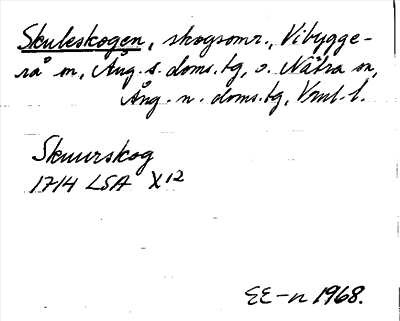 Skuleskogen, skogsomr., Vibygge-
rå sn, Ång. s. doms.tg, o. Nätra sn,
Ång. n. doms.tg, Vnrl. l.
Skuurskog
1714 LSA X12
EE-n 1968.